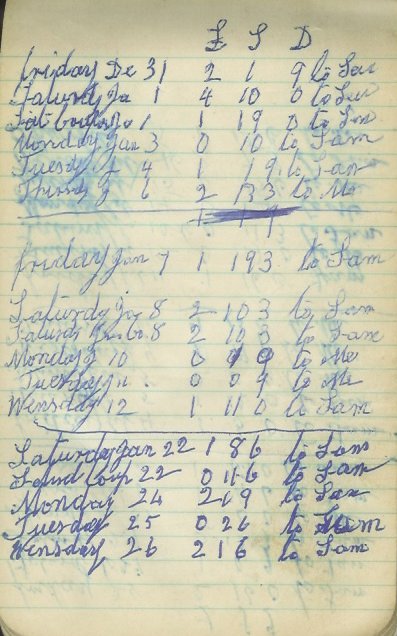 £ S D
friday De 31 2 1 9 to Sam
Saturdy Ja 1 4 10 0 to Sam
Sat 1 1 19 0 to Sam
Monday Jan 3 0 10 to Sam
Tuesdy J 4 1 19 to Sam
Thursdy J 6 2 13 3 to Me
friday Jan 7 1 193 to Sam
Saturdy Jan 8 2 10 3 to Sam
Saturdy Jan 8 2 10 3 to Sam
Monday J 10 0 9 9 to Me
Tuesday J 11 . 0 0 9 to Me
Wensday 12 1 11 0 to Sam
Saturday Jan 22 1 8 6 to Sam
22 0 11 6 to Sam
Monday 24 2 1 9 to Sam
Tuesday 25 0 2 6 to Sam
Wensday 26 2 1 6 to Sam